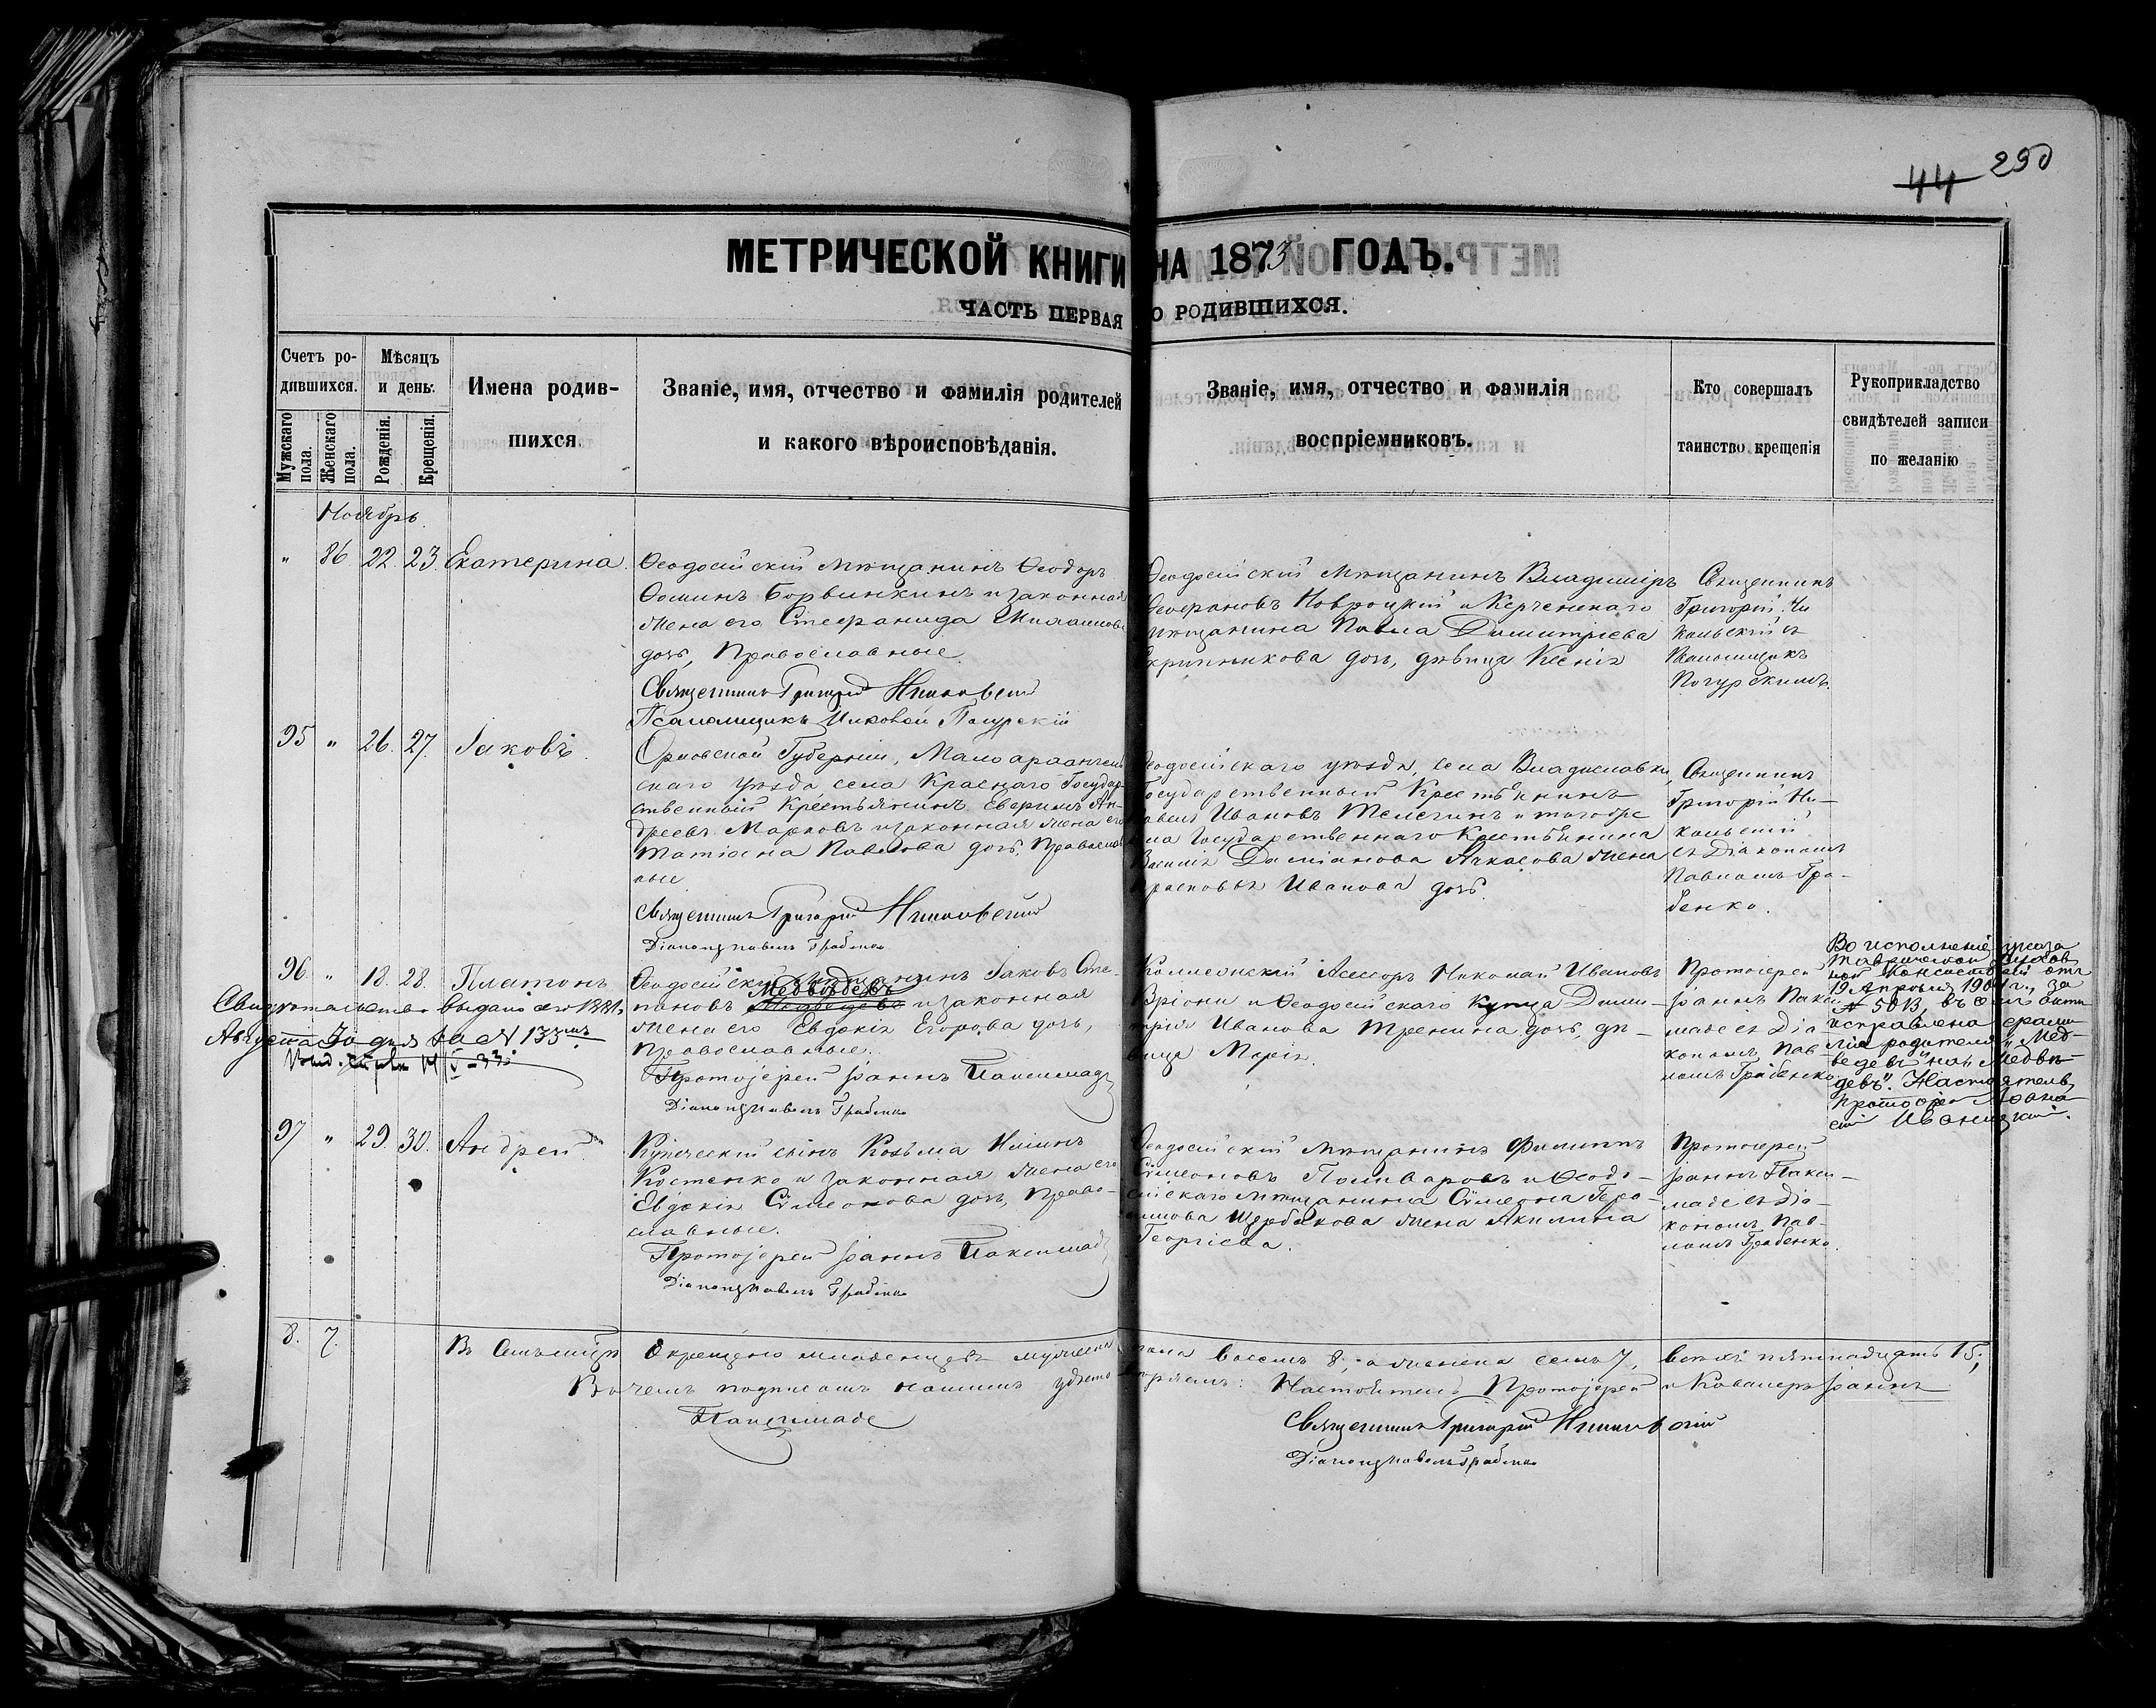 44 290
МЕТРИЧЕСКОЙ КНИГИ НА 1873 ГОДЪ.
ЧАСТЬ ПЕРВАЯ О РОДИВШИХСЯ.
Счетъ ро-
дившихся.
Мужскаго пола.
Женскаго пола.
Мѣсяцъ
и день.
Рожденія.
Крещенія.
Имена родив-
шихся
Званіе, имя, отчество и фамилія родителей
и какого вѣроисповѣданія.
Званіе, имя, отчество и фамилія
воспріемниковъ.
Кто совершалъ
таинство крещенія
Рукоприкладство
свидѣтелей записи
по желанію
Ноябрь.
" 86 22. 23. Екатерина.
Ѳеодосійскій Мѣщанинъ Ѳеодоръ
Ѳоминъ Борвинкинъ и законная
жена его Стефанида
дочь, Православные
Священникъ Григорій Никольскій
Псаломщикъ Погурскій
Ѳеодосійскій Мѣщанинъ Владиміръ
Навроцкій и Керченскаго
мѣщанина Павла Димитріева
Скрипникова дочь, дѣвица Ксенія
Священникъ
Григорій Ни
кольскій съ
Псаломщикъ
Погурскимъ.
95 " 26. 27. Іаковъ.
Орловской Губерніи, Малоархангель
скаго уѣзда, села Краснаго Государ-
ственный Крестьянинъ Севериинъ Ан-
дреевъ Марковъ и законная жена его
Татіана Павлова дочь, Православ
ные
Священникъ Григорій Никольскій
Діаконъ Павелъ Грабенко
Ѳеодосійскаго уѣзда, села Владиславки,
Государственный Крестьянинъ
Павелъ Ивановъ Телегинъ и тогоже
села Государственнаго Крестьянина
Василія Даміанова жена
Прасковья Иванова дочь.
Священникъ
Григорій Ни-
кольскій
съ Діакономъ
Павломъ Гра-
бенко.
96. " 18. 28. Платонъ
Ѳеодосійскій мѣщанинъ Іаковъ Сте-
Медвѣдевъ
пановъ и законная
жена его Евдокія Егорова дочь,
Православные.
Протоіерей Іоаннъ Паксимадъ
Діаконъ Павелъ Грабенко
Свидѣтельство выдано въ 1881.
Августа 30 дня за N 135мъ
Коллежскій Асессоръ Николай Ивановъ
Вріони и Ѳеодосійскаго Купца Дими-
трія Иванова Тренина дочь, дѣ-
вица Марія.
Протоіерей
Іоаннъ Пакси
мадъ съ Діа
кономъ Пав
ломъ Грабенко
Во исполненіе указа
Таврической Духов
ной Консисторіи отъ
19 Апрѣля 1904 г., за
№ 5013, въ семъ актѣ
исправлена фами
лія родителя „Мед-
ведевъ" на „Медвѣ-
девъ". Настоятель
Протоіерей Аѳана
сій Иваницкій.
97 " 29. 30. Андрей.
Купеческій сынъ Козьма Ильинъ
Костенко и законная жена его
Евдокія Сѵмеонова дочь, Право-
славные.
Протоіерей Іоаннъ Паксимадъ
Діаконъ Павелъ Грабенко
Ѳеодосійскій мѣщанинъ Филиппъ
Сѵмеоновъ Поливаровъ и Ѳеодо-
сійскаго мѣщанина Сѵмеона Гера-
симова Щербакова жена Акилина
Георгіева.
Протоіерей
Іоаннъ Пакси-
мадъ съ Діа-
кономъ Пав-
ломъ Грабенко.
8. 7. Въ семъ мѣсяцѣ Окрещено младенцевъ мужеска пола восемь 8, а женска семь 7, всѣхъ пятнадцать 15;
Въ чемъ подписомъ нашимъ удостовѣряемъ: Настоятель Протоіерей и Кавалеръ Іоаннъ
Паксимадъ
Священникъ Григорій Никольскій
Діаконъ Павелъ Грабенко